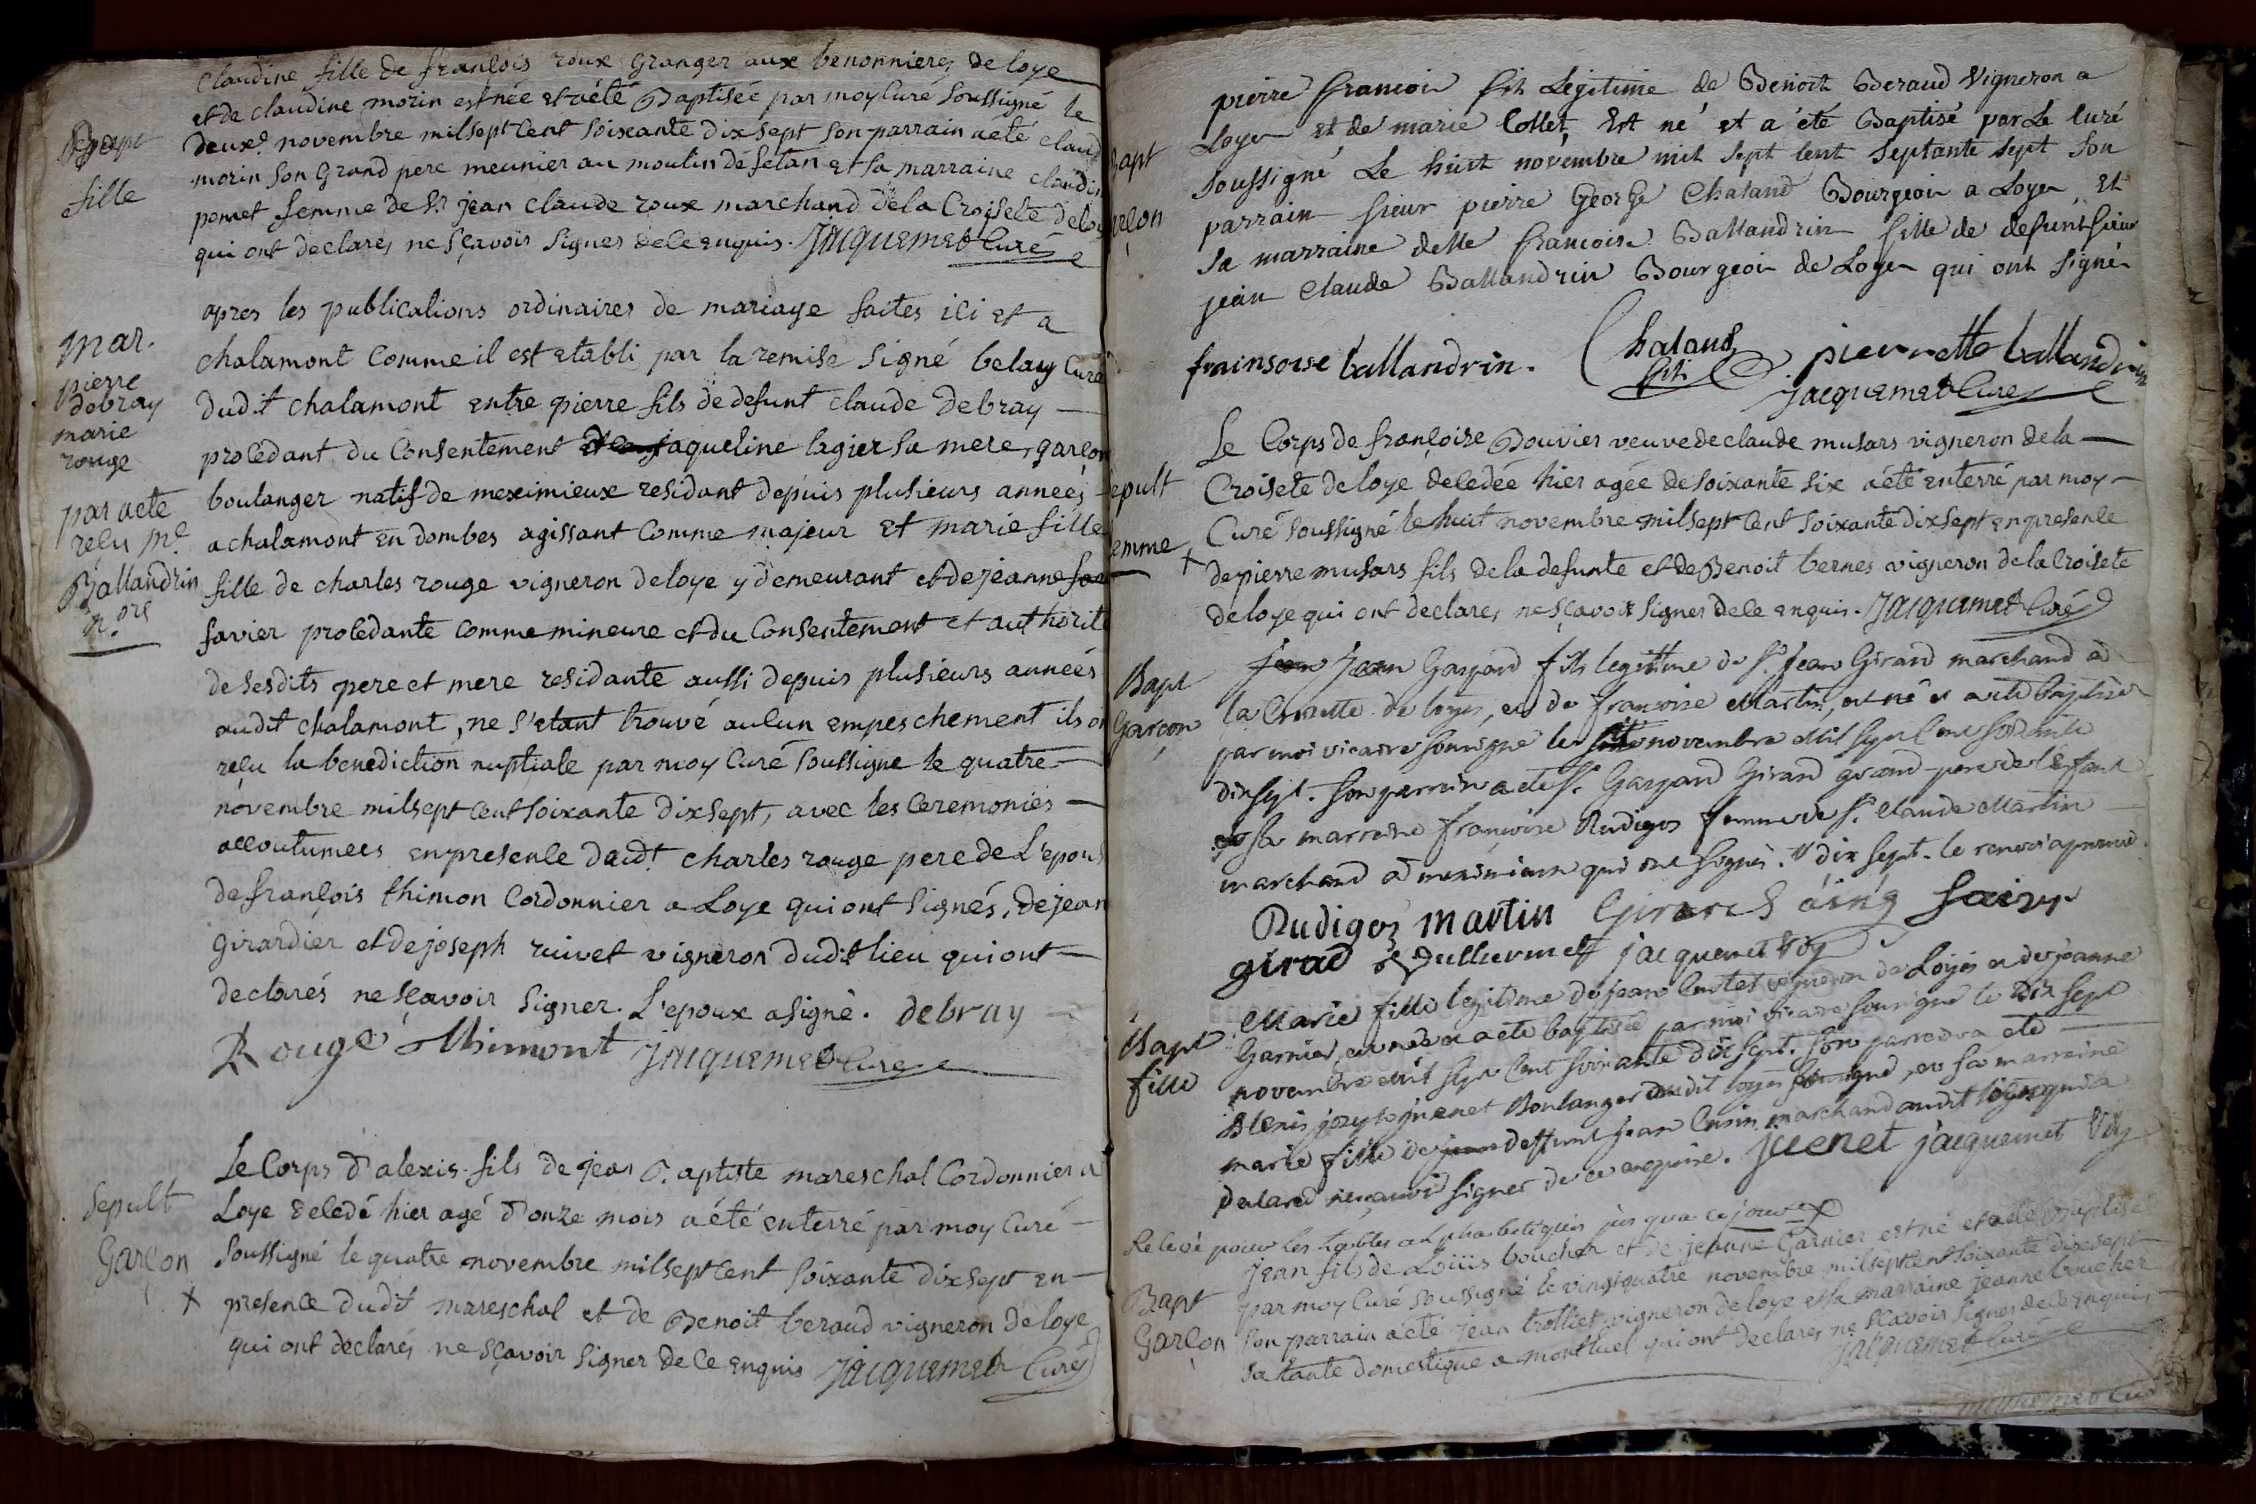 claudine fille de françois roux granger aux benonnieres de loye
et de claudine morin est née et a été Baptisée par moy curé soussigné le
deuxe. novembre mil sept cent soixante dix sept son parrain a été claud
morin son grand pere meunier au moulin de fetan et sa marraine claudin
femme de Sr jean claude roux marchand de la Croisete de loy
qui ont declarés ne sçavoir signer de ce enquis. Jacquemet Curé
Bapt
fille
apres les publications ordinaires de mariage faites ici et a
chalamont comme il est etabli par la remise signé belay Curé
dudit chalamont entre pierre fils de defunt claude debray
procedant du consentement jaqueline lagier sa mere, garçon
boulanger natif de meximieux residant depuis plusieurs années
a chalamont en dombes agissant comme majeur et marie fille
fille de charles rouge vigneron de loye y demeurant et de jeanne
favier procedante comme mineure et du consentement et authorité
de sesdits pere et mere residante aussi depuis plusieurs années
audit chalamont, ne s'etant trouvé aucun empeschement ils on
reçu la benediction nuptiale par moy Curé soussigné le quatre
novembre mil sept cent soixante dix sept, avec les ceremonies
accoutumées en presence dudt charles rouge pere de L'epous
de françois thimon cordonnier a Loye qui ont signés, de jean
girardier et de joseph ruivet vigneron dudit lieu qui ont
declarés ne sçavoir signer. L'epoux a signé. debray
Rouge thimont jacquemet Curé
mar.
pierre
debray
marie
rouge
par acte
reçu Me
Ballandrin
nore
Le Corps d'alexis fils de jean Baptiste mareschal Cordonnier a
Loye decedé hier agé d'onze mois a été enterré par moy Curé
soussigné le quatre novembre mil sept cent soixante dix sept en
presence dudit mareschal et de Benoit beraud vigneron de loye
qui ont declarés ne sçavoir signer de ce enquis Jacquemet Curé
Sepult
Garçon
x
pierre francois fils Légitime de Benoit Beraud Vigneron a
Loye et de marie Collet, Est né et a été Baptisé par Le Curé
soussigné Le huit novembre mil sept cent septante sept son
parrain sieur pierre George Chaland Bourgeois a Loye, Et
sa marraine delle francoise Ballandrin fille de defunt sieur
jean Claude Ballandrin Bourgeois de Loye qui ont signé
frainsoise ballandrin. Chaland pierrette ballandrin
Jacquemet Curé
Bapt
arçon
Le Corps de françoise Bouvier veuve de claude musars vigneron de la
Croisete de loye decedée hier agée de soixante six a été enterré par moy
Curé soussigné le huit novembre mil sept cent soixante dix sept en presence
de pierre musars fils de la defunte et de Benoit bernes vigneron de la Croisete
de loye qui ont declares ne sçavoir signer de ce enquis. Jacquemet Curé
epult
emme
x
jean Jean Gaspard fils legittime de Sr. Jean Girard marchand à
la Croizette de loyes, et de francoise Martin, est né et a eté baptisé
par moi vicaire soussigné le novembre mil sept cent soixante
dix sept. son parrain a eté Sr. Gaspard Girard grand-pere de l'enfant
et sa marraine françoise Rudigoz femme de Sr. Claude Martin
marchand a meximieux qui ont signés. dix sept. le renvoi approuvé.
Rudigoz martin Girard ainé
girad jacquemet Vic
Bapt
Garçon
Marie fille legitime de jean vigneron de Loyes et de jeanne
Garnier, est née et a eté baptisée par moi vicaire soussigné le dix sept
novembre mil sept cent soixante dix sept. son parrain a eté
Alexis joseph juenet Boulanger dudit loyes soussigné, et sa marraine
marie fille de jean deffunt jean marchand audit loyes qui a
declaré ne scavoir signer de ce enquise. Juenet jacquemet Vic
Bapt
fille
Relevé pour les tables alphabetiques jusqu'a ce jour
jean fils de Loüis boucher et de jeanne Garnier est né et a été Baptisé
par moy Curé soussigné le vingt quatre novembre mil sept cent soixante dix sept
son parrain a été jean trolliet vigneron de loye et sa marraine jeanne boucher
sa tante domestique a montluel qui ont declares ne sçavoir signer de ce enquis
Jacquemet Curé
Bapt
Garçon